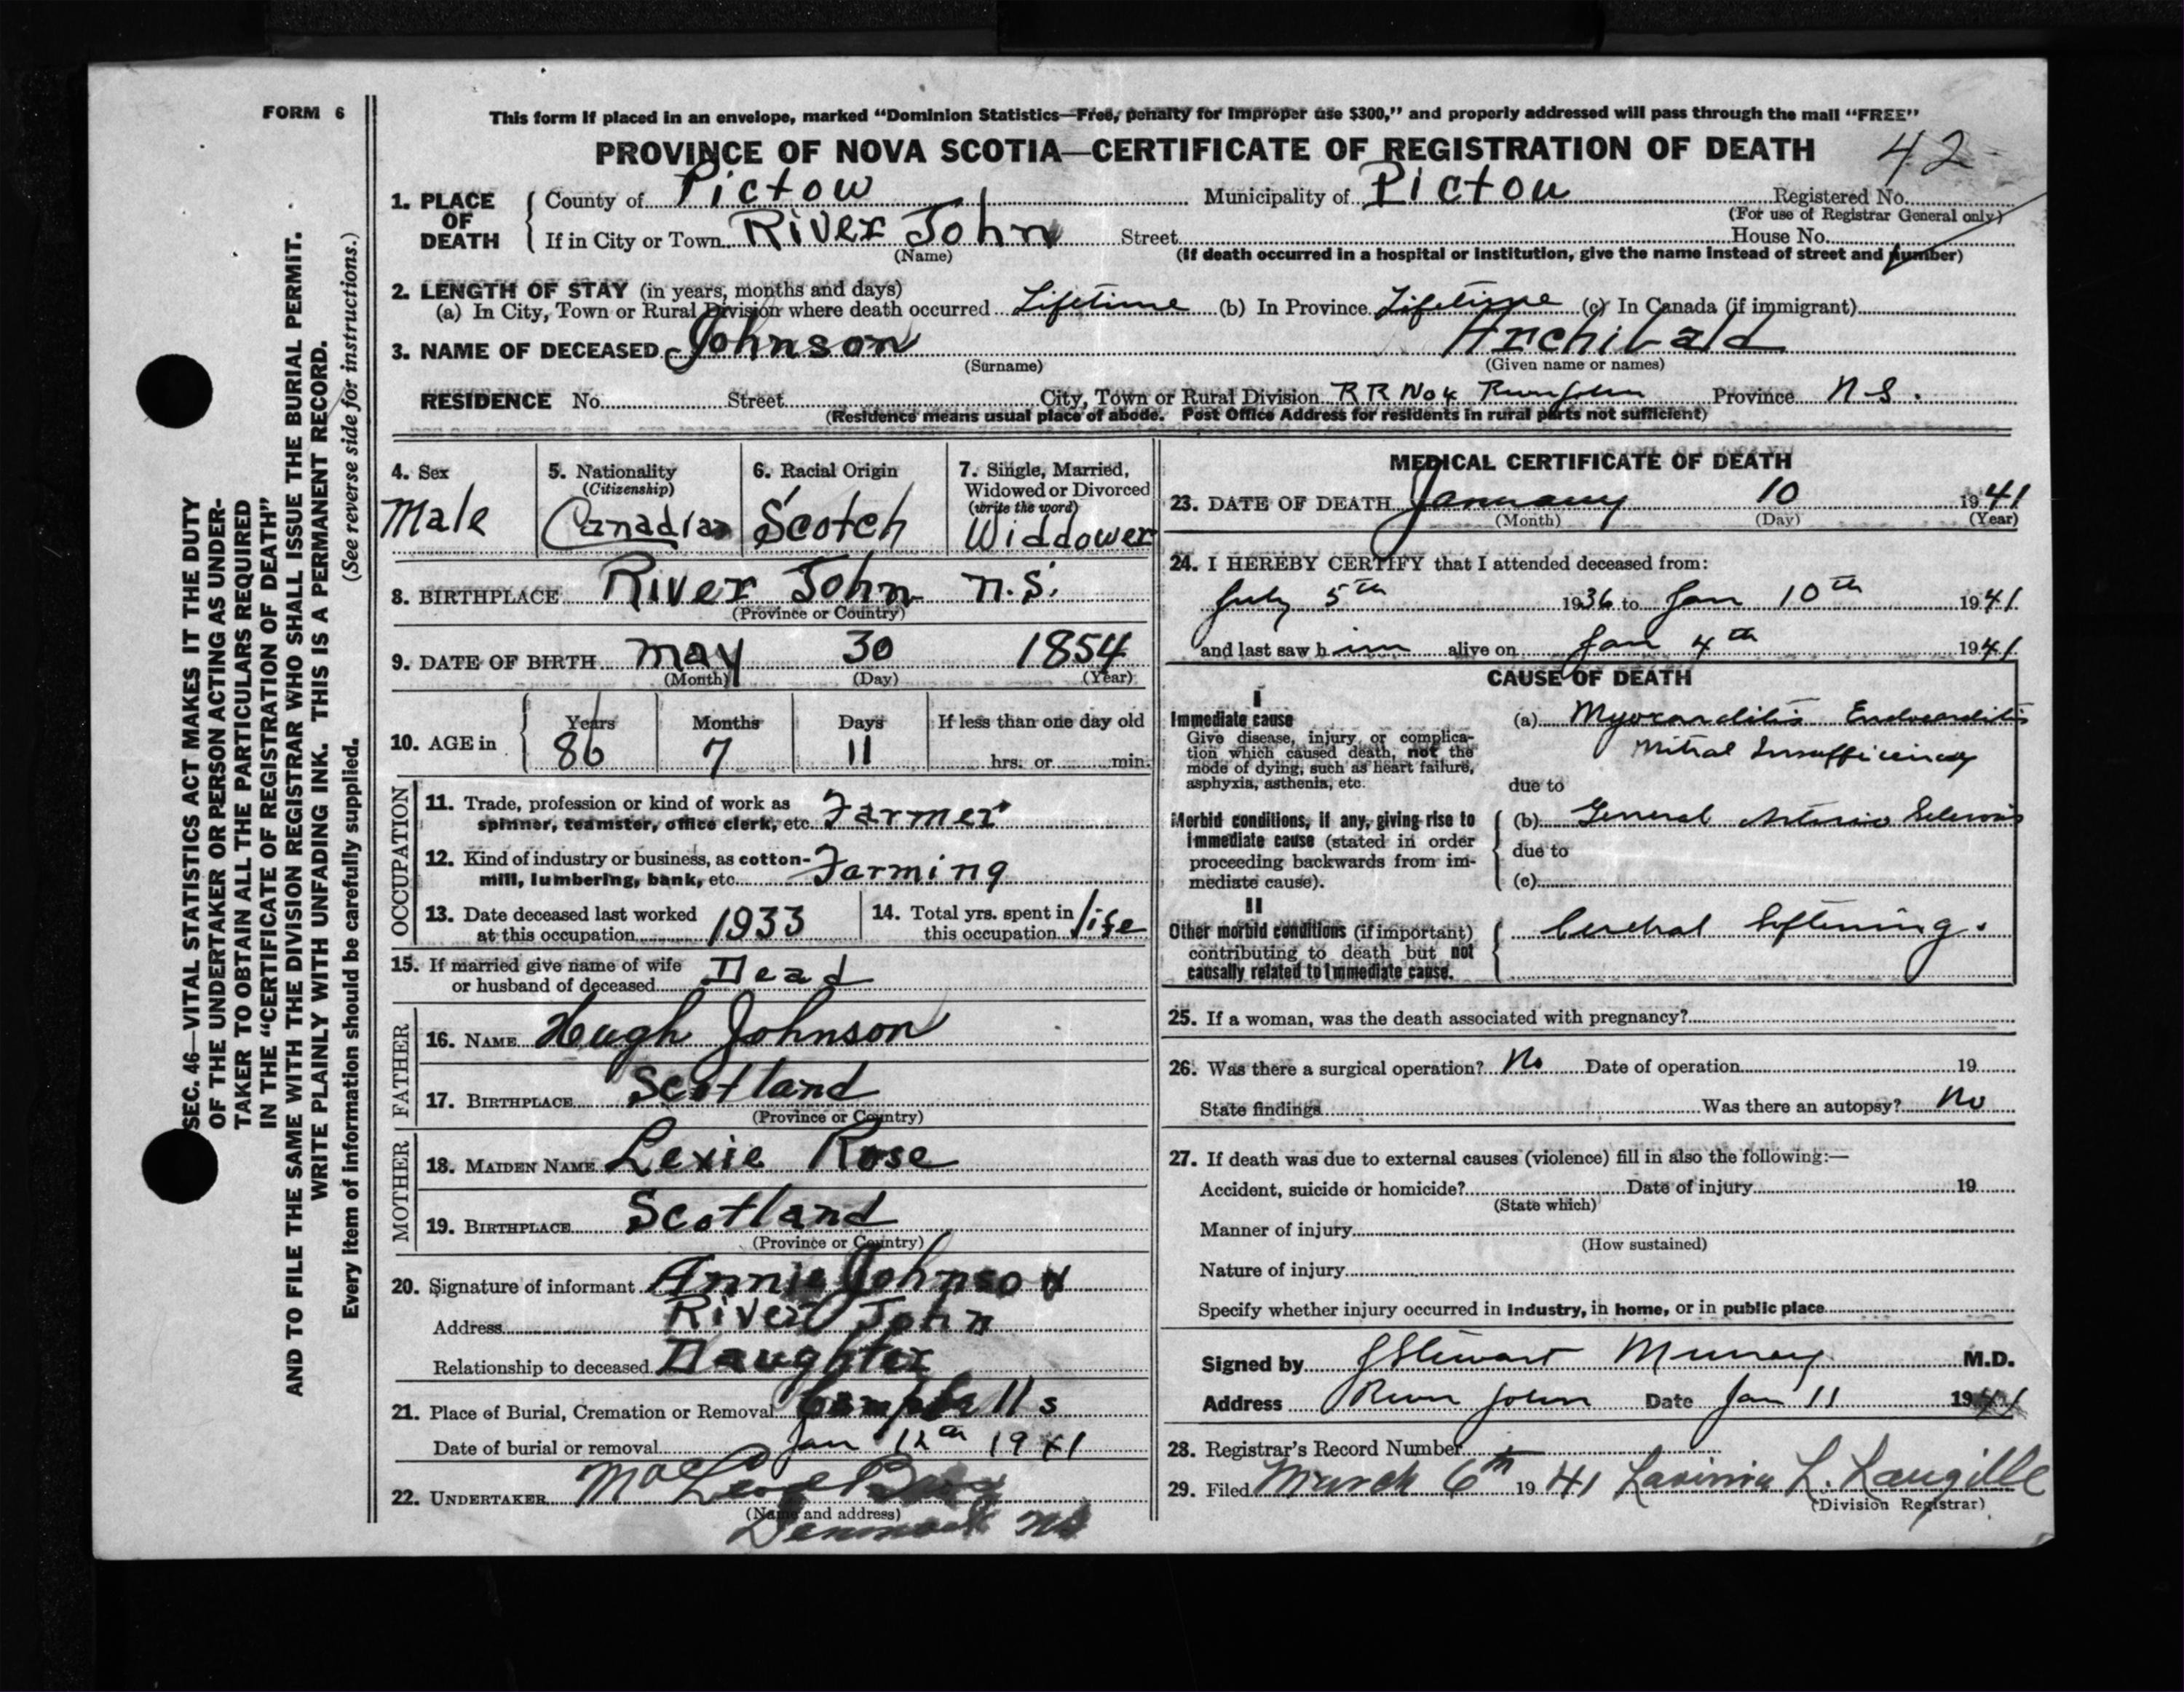 FORM 6
This form if placed in an envelope, marked "Dominion Statistics—Free, penalty for improper use $300," and properly addressed will pass through the mail "FREE"
PROVINCE OF NOVA SCOTIA—CERTIFICATE OF REGISTRATION OF DEATH
42
1. PLACE OF DEATH
County of Pictow Municipality of Pictou Registered No.
(For use of Registrar General only)
If in City or Town River John Street House No.
(Name) (If death occurred in a hospital or institution, give the name instead of street and number)
2. LENGTH OF STAY (in years, months and days)
(a) In City, Town or Rural Division where death occurred Lifetime (b) In Province Lifetime (c) In Canada (if immigrant)
3. NAME OF DECEASED Johnson Archibald
(Surname) (Given name or names)
RESIDENCE No. Street City, Town or Rural Division R R No 4 River John Province N S.
(Residence means usual place of abode. Post Office Address for residents in rural parts not sufficient)
4. Sex
Male
5. Nationality
(Citizenship)
Canadian
6. Racial Origin
Scotch
7. Single, Married,
Widowed or Divorced
(write the word)
Widdower
8. BIRTHPLACE River John n.s.
(Province or Country)
9. DATE OF BIRTH may 30 1854
(Month) (Day) (Year)
10. AGE in
Years Months Days If less than one day old
86 7 11 hrs. or min.
OCCUPATION
11. Trade, profession or kind of work as
spinner, teamster, office clerk, etc. Farmer
12. Kind of industry or business, as cotton-
mill, lumbering, bank, etc. Farming
13. Date deceased last worked
at this occupation 1933
14. Total yrs. spent in
this occupation life
15. If married give name of wife
or husband of deceased Dead
FATHER
16. NAME Hugh Johnson
17. BIRTHPLACE Scotland
(Province or Country)
MOTHER
18. MAIDEN NAME Lexie Rose
19. BIRTHPLACE Scotland
(Province or Country)
20. Signature of informant Annie Johnson
Address River John
Relationship to deceased Daughter
21. Place of Burial, Cremation or Removal Campbells
Date of burial or removal Jan 12th 1941
22. UNDERTAKER
(Name and address)
Denmark NS
MEDICAL CERTIFICATE OF DEATH
23. DATE OF DEATH January 10 1941
(Month) (Day) (Year)
24. I HEREBY CERTIFY that I attended deceased from:
July 5th 1936 to Jan 10th 1941
and last saw him alive on Jan 4th 1941
CAUSE OF DEATH
I
Immediate cause
Give disease, injury, or complica-
tion which caused death, not the
mode of dying, such as heart failure,
asphyxia, asthenia, etc.
(a) Myocarditis Endocarditis
Mitral Insufficiency
due to
Morbid conditions, if any, giving rise to
immediate cause (stated in order
proceeding backwards from im-
mediate cause).
(b) General Arterio Sclerosis
due to
(c)
II
Other morbid conditions (if important)
contributing to death but not
causally related to immediate cause.
Cerebral Softening.
25. If a woman, was the death associated with pregnancy?
26. Was there a surgical operation? No Date of operation 19
State findings Was there an autopsy? No
27. If death was due to external causes (violence) fill in also the following:—
Accident, suicide or homicide? Date of injury 19
(State which)
Manner of injury
(How sustained)
Nature of injury
Specify whether injury occurred in industry, in home, or in public place
Signed by J Stewart Murray M.D.
Address River John Date Jan 11 1941
28. Registrar's Record Number
29. Filed March 6th 1941 Lavinia L. Langille
(Division Registrar)
SEC. 46—VITAL STATISTICS ACT MAKES IT THE DUTY
OF THE UNDERTAKER OR PERSON ACTING AS UNDER-
TAKER TO OBTAIN ALL THE PARTICULARS REQUIRED
IN THE "CERTIFICATE OF REGISTRATION OF DEATH"
AND TO FILE THE SAME WITH THE DIVISION REGISTRAR WHO SHALL ISSUE THE BURIAL PERMIT.
WRITE PLAINLY WITH UNFADING INK. THIS IS A PERMANENT RECORD.
Every item of information should be carefully supplied. (See reverse side for instructions.)